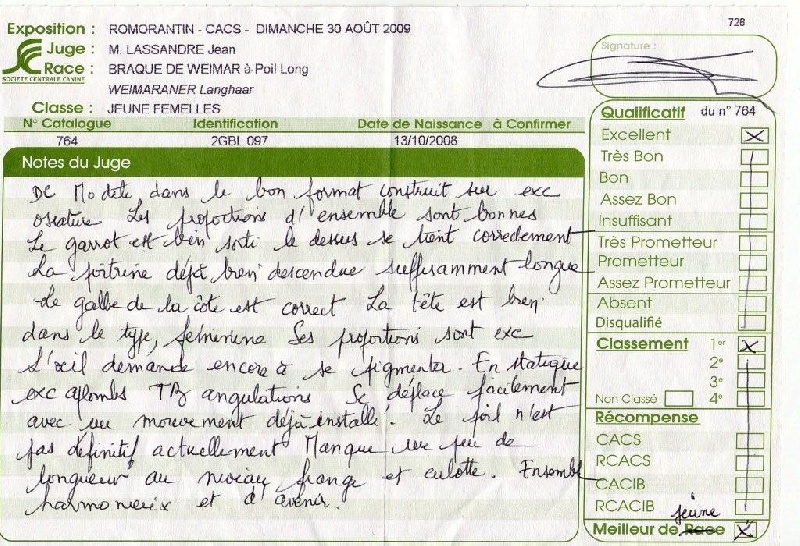 728
Exposition : ROMORANTIN - CACS - DIMANCHE 30 AOÛT 2009
Juge : M. LASSANDRE Jean
Race : BRAQUE DE WEIMAR à Poil Long
SOCIÉTÉ CENTRALE CANINE
WEIMARANER Langhaar
Classe : JEUNE FEMELLES
Signature :
N° Catalogue Identification Date de Naissance à Confirmer
764 2GBL 097 13/10/2008
Notes du Juge
De Modele dans le bon format construit sur exc
ossature Les proportions d'ensemble sont bonnes
Le garrot est bien sorti le dessus se tient correctement
La poitrine déjà bien descendue suffisamment longue
Le galbe de la côte est correct La tête est bien
dans le type, feminine Ses proportions sont exc
L'œil demande encore à se pigmenter. En statique
exc aplombs TB angulations Se déplace facilement
avec un mouvement déjà installé. Le poil n'est
pas définitif actuellement Manque un peu de
longueur au niveau frange et culotte. Ensemble
harmonieux et d'avenir.
Qualificatif du n° 764
Excellent X
Très Bon
Bon
Assez Bon
Insuffisant
Très Prometteur
Prometteur
Assez Prometteur
Absent
Disqualifié
Classement 1er X
2e
3e
Non Classé 4e
Récompense
CACS
RCACS
CACIB
RCACIB
jeune
Meilleur de Race X